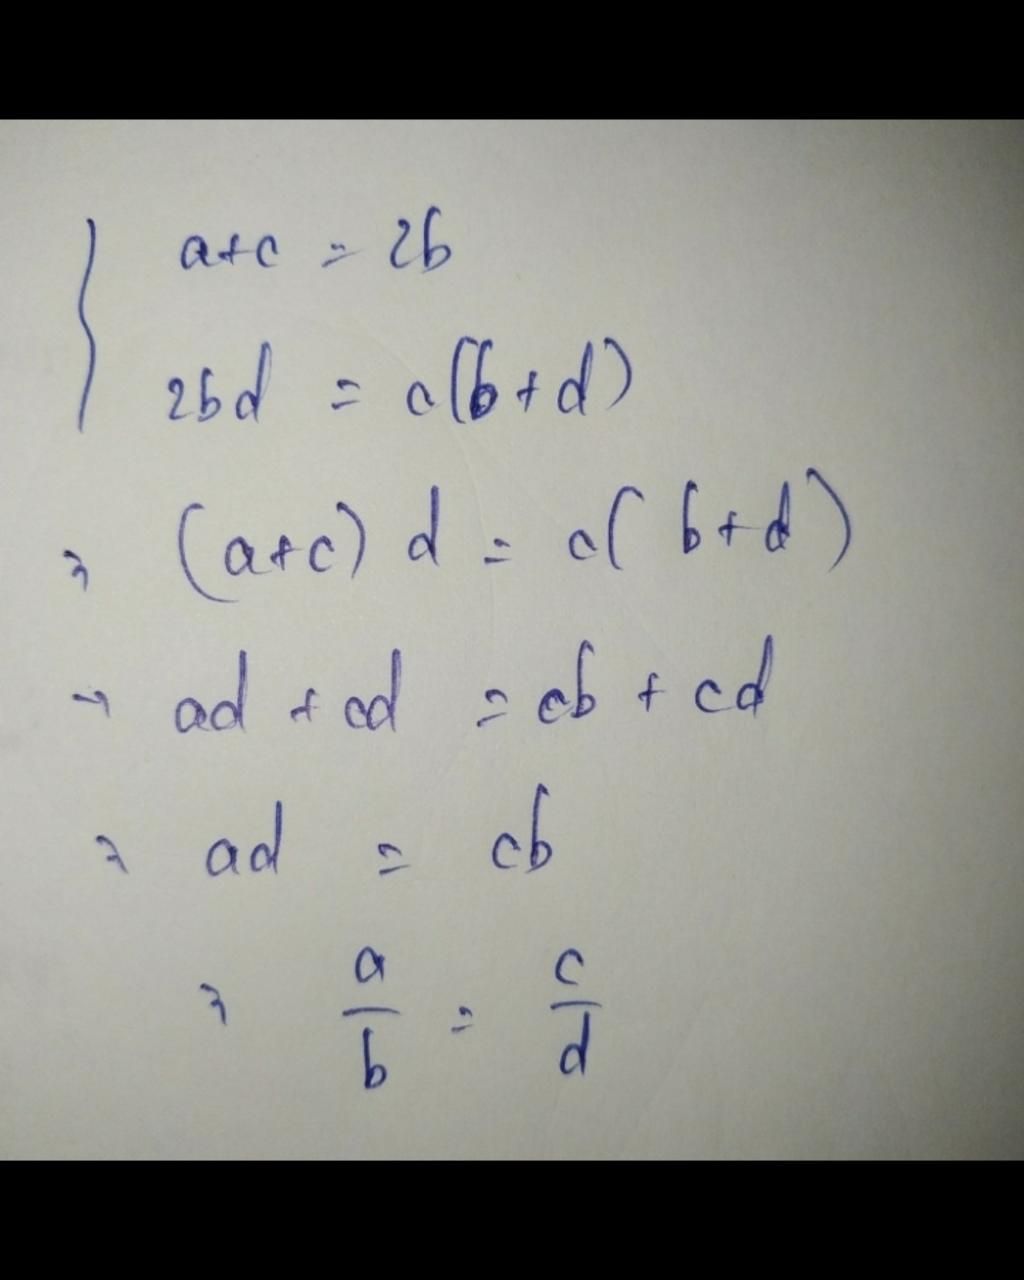 { a+c = 2b
2bd = c(b+d)
→ (a+c) d = c( b+d )
→ ad + cd = cb + cd
→ ad = cb
→ a/b = c/d